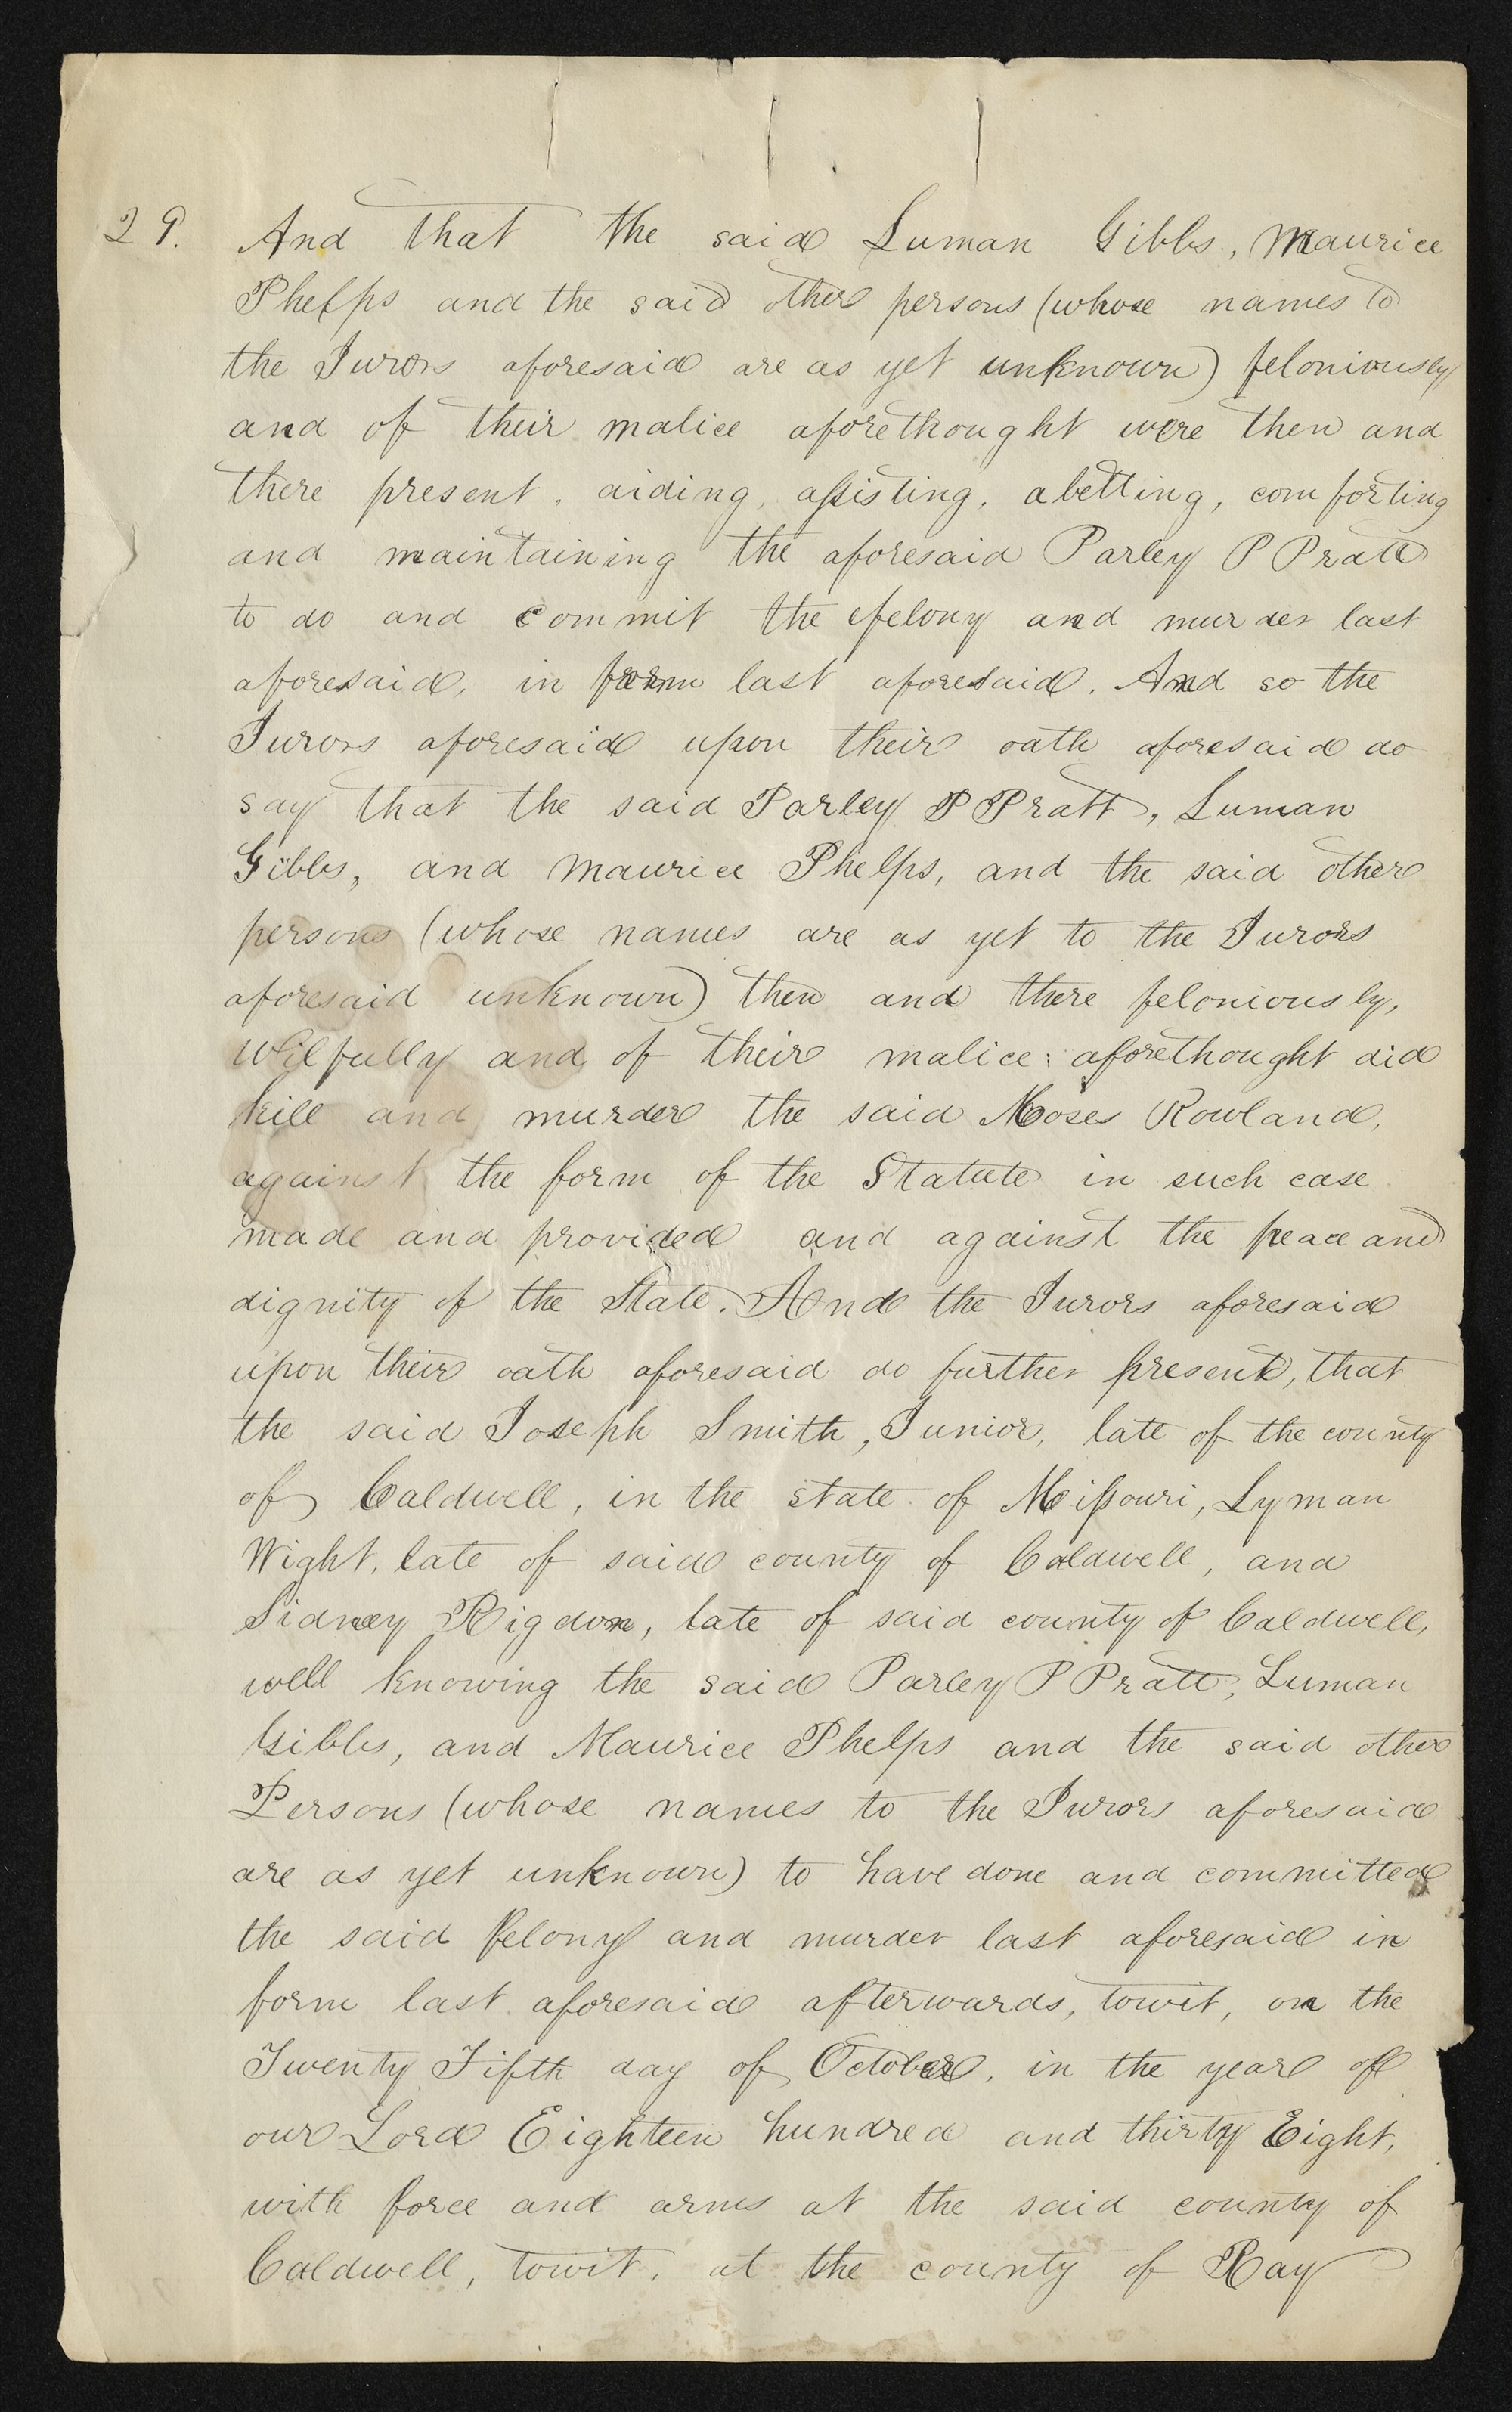 29. And that the said Luman Gibbs, Maurice
Phelps and the said other persons (whose names to
the Jurors aforesaid are as yet unknown) feloniously
and of their malice aforethought were then and
there present, aiding, assisting, abetting, comforting
and maintaining the aforesaid Parley P Pratt
to do and commit the felony and murder last
aforesaid, in form last aforesaid. And so the
Jurors aforesaid upon their oath aforesaid do
say that the said Parley P Pratt, Luman
Gibbs, and Maurice Phelps, and the said other
persons (whose names are as yet to the Jurors
aforesaid unknown) then and there feloniously,
wilfully and of their malice aforethought did
kill and murder the said Moses Rowland,
against the form of the Statute in such case
made and provided and against the peace and
dignity of the State. And the Jurors aforesaid
upon their oath aforesaid do further present, that
the said Joseph Smith, Junior, late of the county
of Caldwell, in the state of Missouri, Lyman
Wight, late of said county of Caldwell, and
Sidney Rigdon, late of said county of Caldwell,
well knowing the said Parley P Pratt, Luman
Gibbs, and Maurice Phelps and the said other
Persons (whose names to the Jurors aforesaid
are as yet unknown) to have done and committed
the said felony and murder last aforesaid in
form last aforesaid afterwards, towit, on the
Twenty Fifth day of October, in the year of
our Lord Eighteen hundred and thirty Eight,
with force and arms at the said county of
Caldwell, towit, at the county of Ray